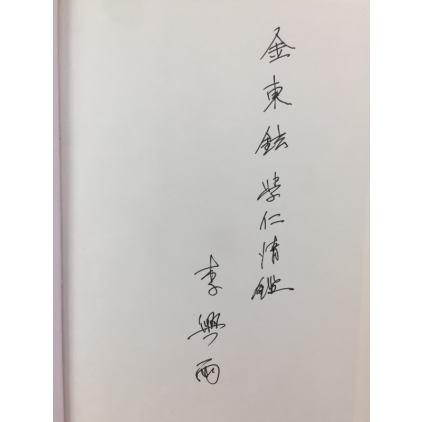 金東鉉 學仁情鑑
李興雨